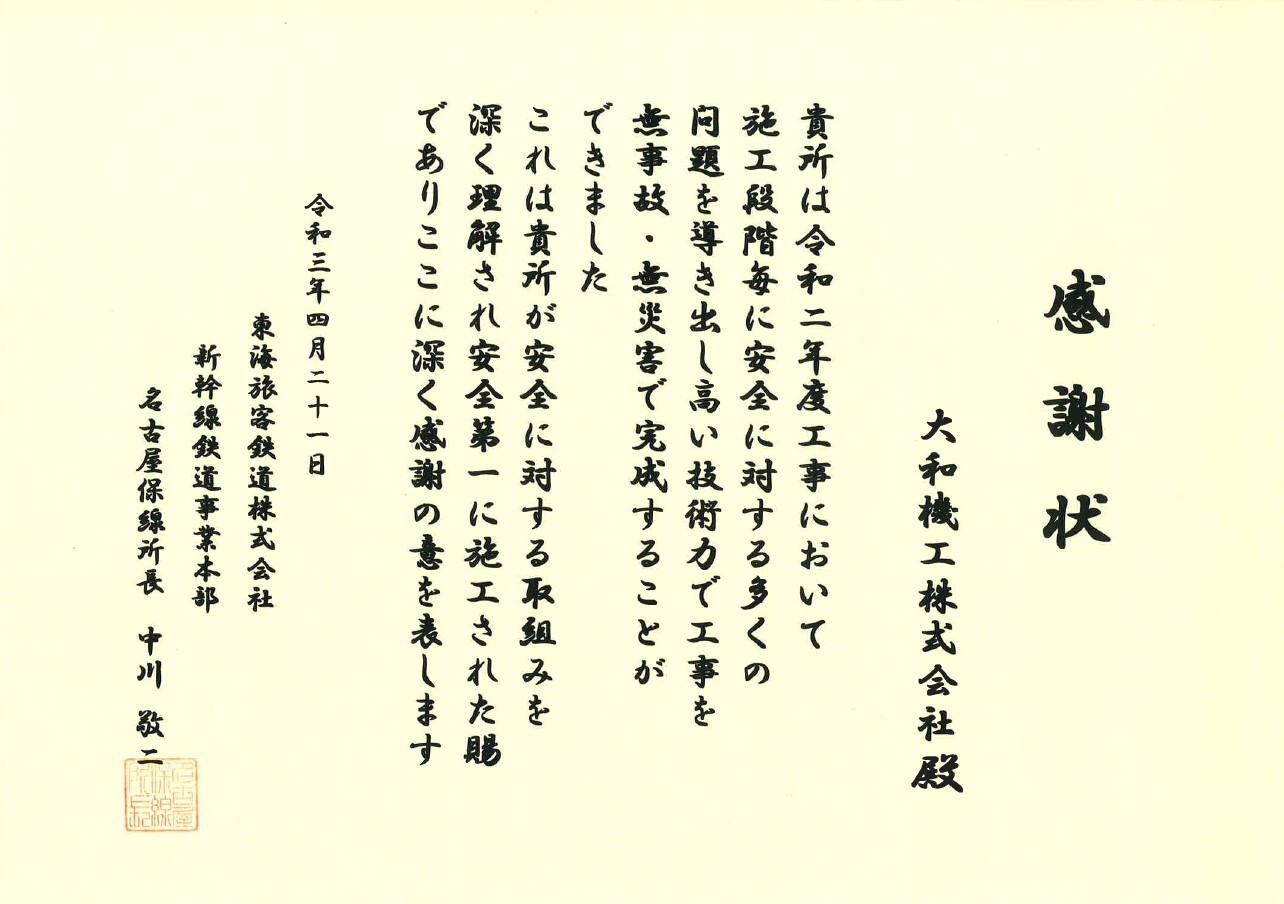 感謝状
大和機工株式会社殿
貴所は令和二年度工事において
施工段階毎に安全に対する多くの
問題を導き出し高い技術力で工事を
無事故・無災害で完成することが
できました
これは貴所が安全に対する取組みを
深く理解され安全第一に施工された賜
でありここに深く感謝の意を表します
令和三年四月二十一日
東海旅客鉄道株式会社
新幹線鉄道事業本部
名古屋保線所長 中川 敬二
名古屋
保線
所長